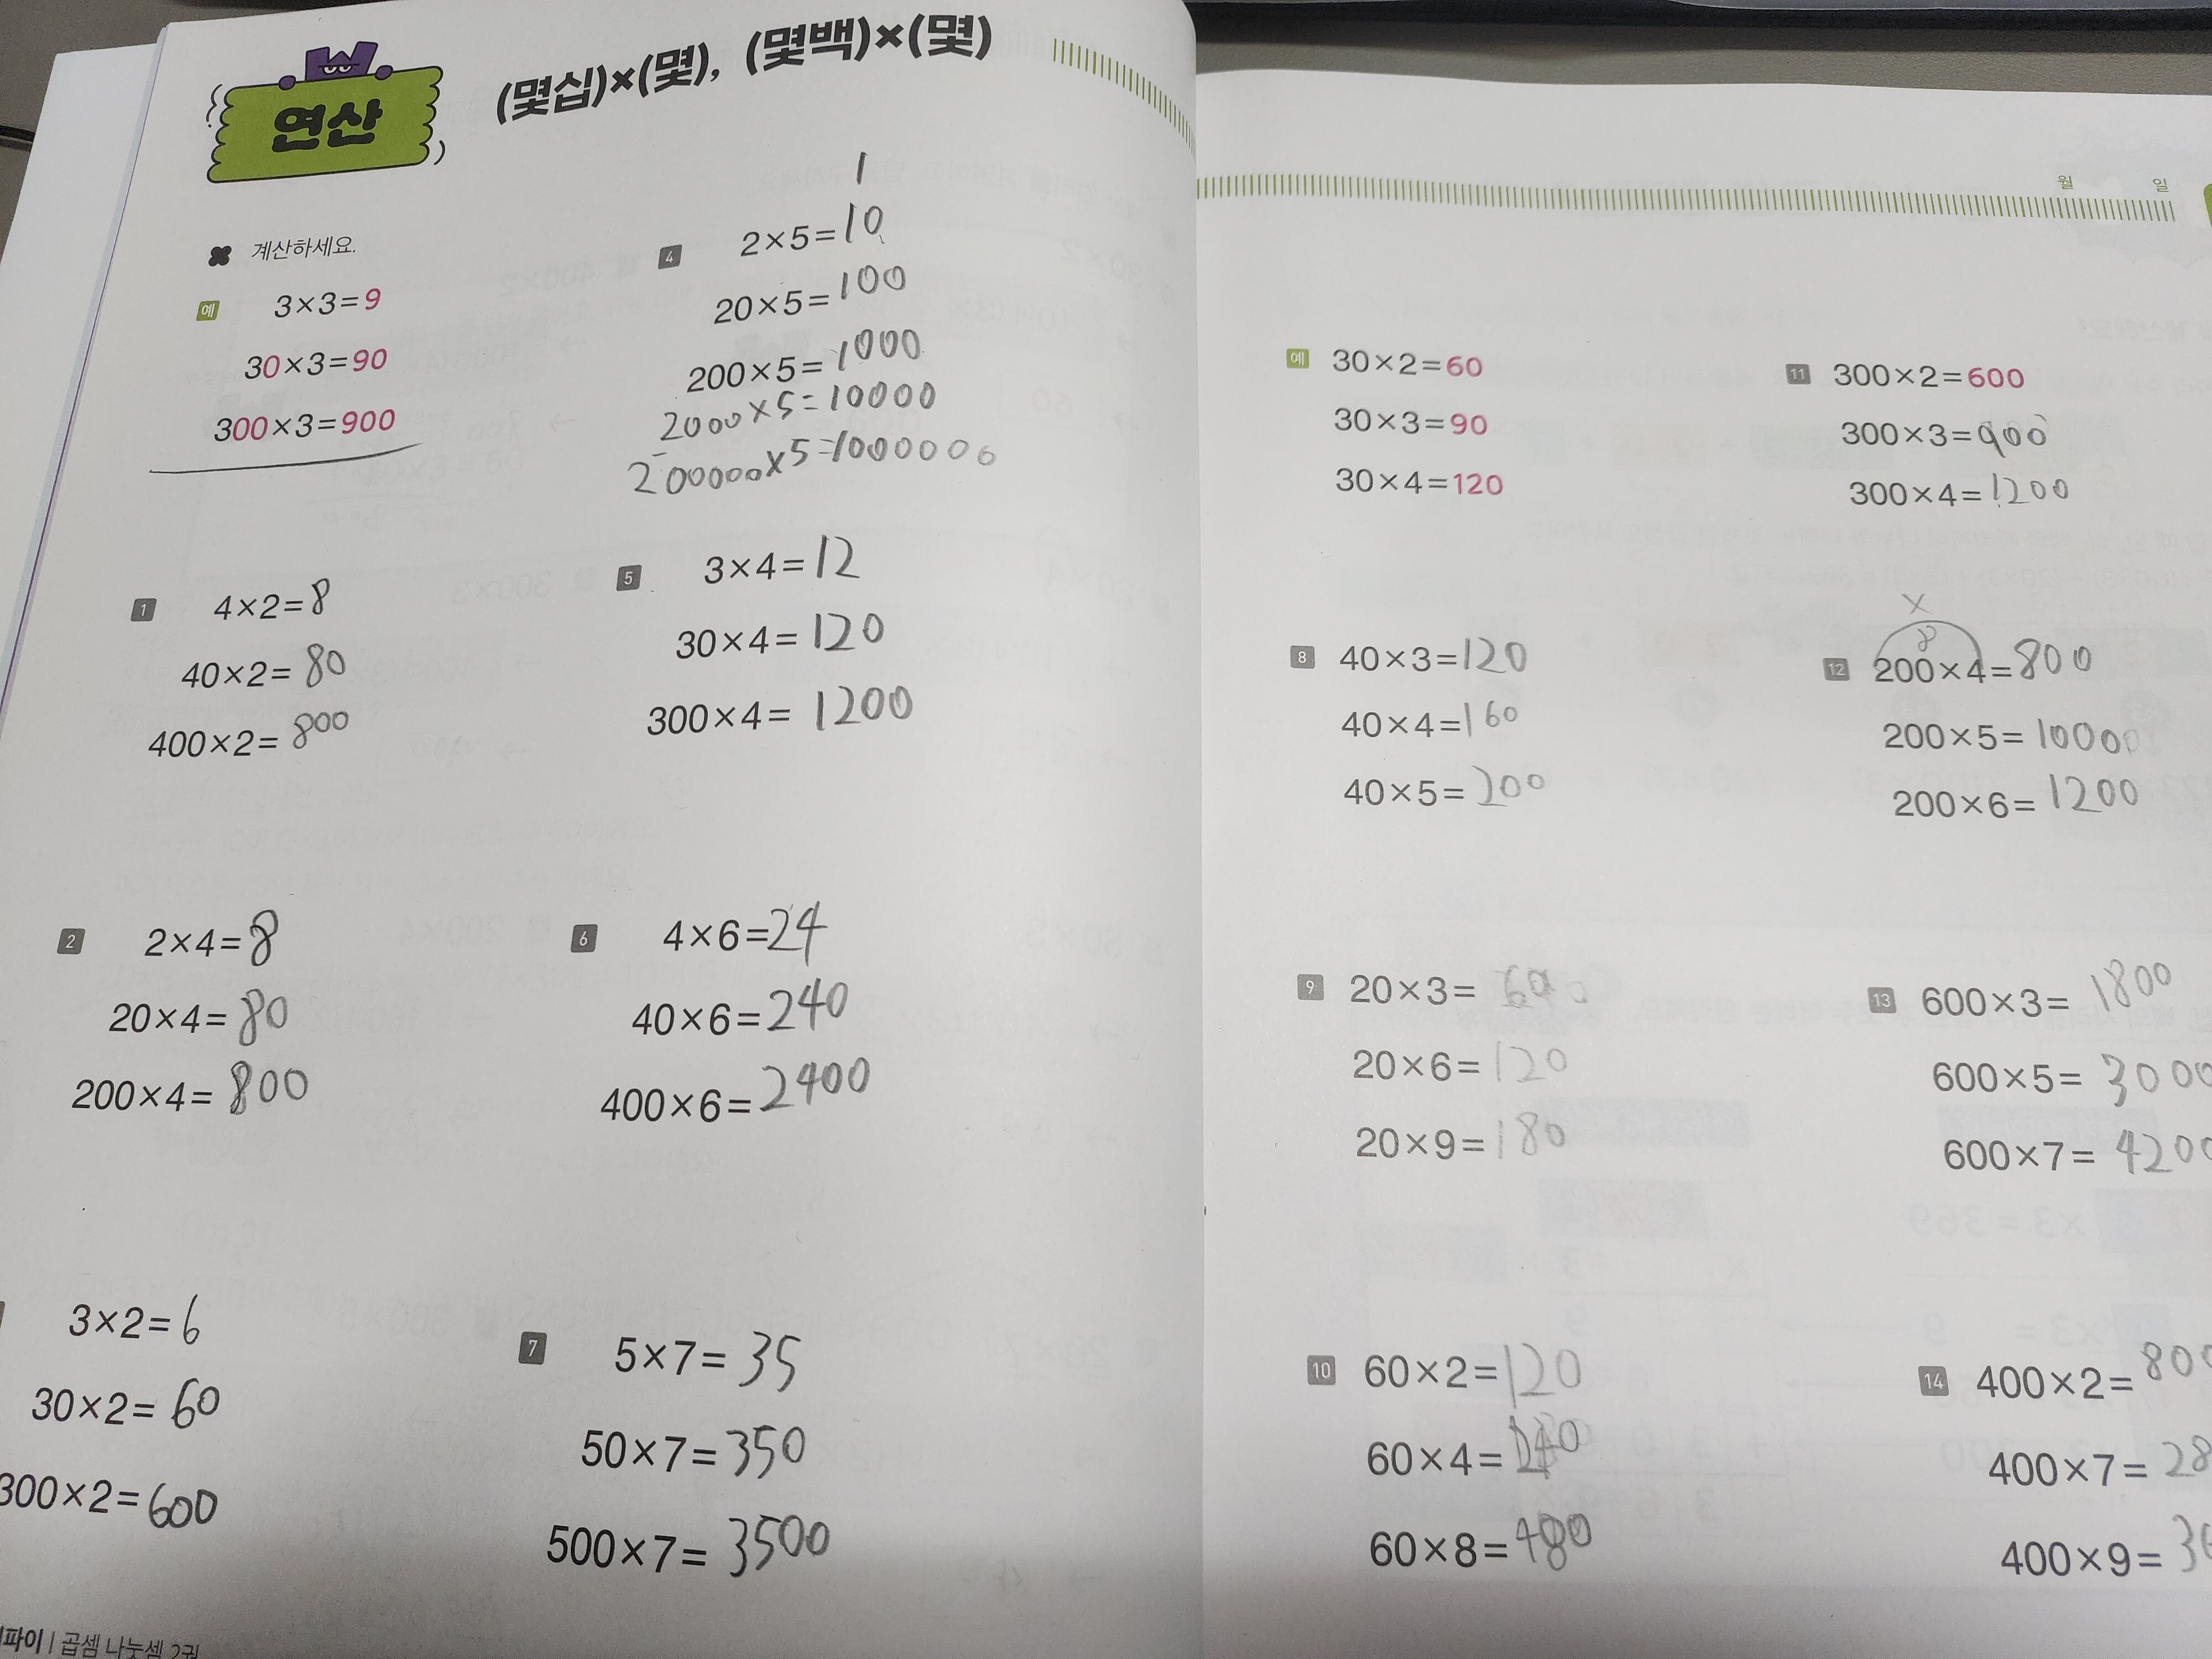 연산
(몇십)×(몇), (몇백)×(몇)
계산하세요.
예 3×3=9
30×3=90
300×3=900
1 4×2=8
40×2=80
400×2=800
2 2×4=8
20×4=80
200×4=800
3×2=6
30×2=60
300×2=600
1
4 2×5=10
20×5=100
200×5=1000
2000×5=10000
200000×5=1000000
5 3×4=12
30×4=120
300×4=1200
6 4×6=24
40×6=240
400×6=2400
7 5×7=35
50×7=350
500×7=3500
파이 | 곱셈 나눗셈 2권
월 일
예 30×2=60
30×3=90
30×4=120
8 40×3=120
40×4=160
40×5=200
9 20×3=60
20×6=120
20×9=180
10 60×2=120
60×4=240
60×8=480
11 300×2=600
300×3=900
300×4=1200
×
8
12 200×4=800
200×5=1000
200×6=1200
13 600×3=1800
600×5=3000
600×7=4200
14 400×2=800
400×7=28
400×9=36